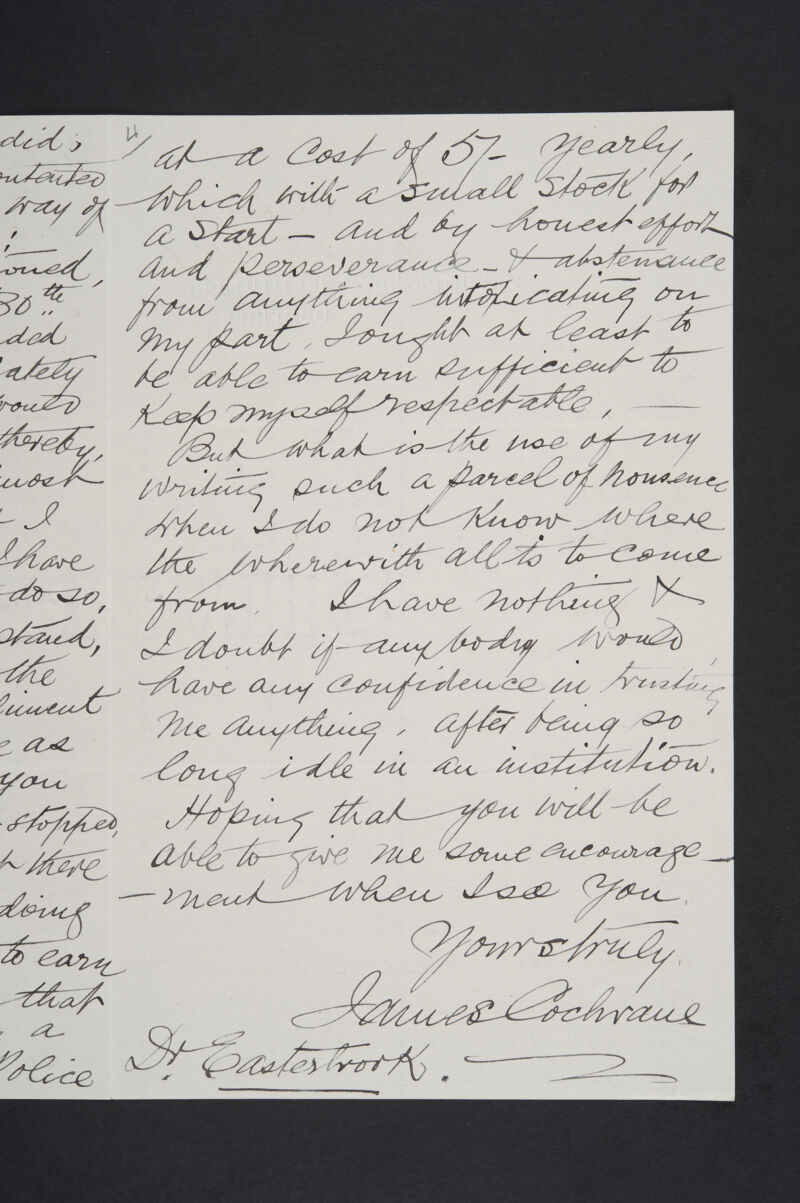 did;
way of
30th
ded
ately
would
thereby,
most
I
I have
do so,
stand,
the
as
you
stopped,
there
doing
to earn
that
a
Police
4/
at a cost of 5/- yearly,
which with a small stock for
a start – and by honest effort
and perseverance – & abstenance
from anything intoxicating on
my part, I ought at least to
be able to earn sufficient to
keep myself respectable, —
But what is the use of my
writing such a parcel of nonsence
when I do not know where
the wherewith all is to come
from. I have nothing &
I doubt if anybody would
have any confidence in trusting
me anything, after being so
long idle in an institution.
Hoping that you will be
able to give me some encourage–
–ment when I see you.
Yours truly.
James Cochrane
Dr. Easterbrook.